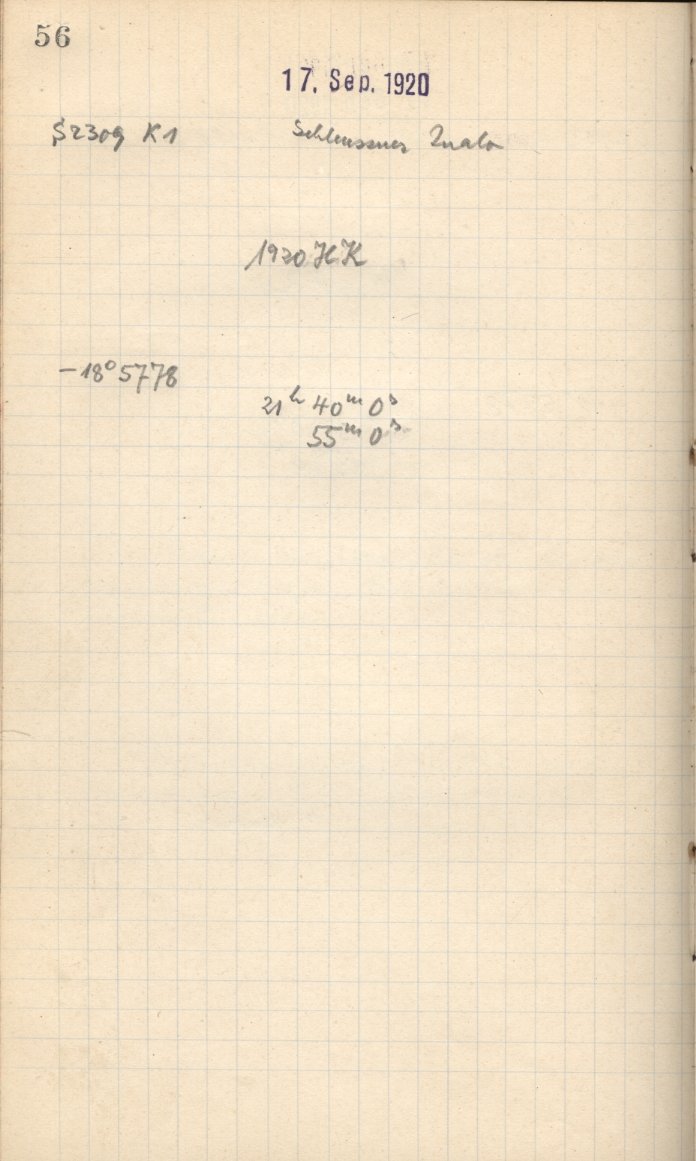 56
17. Sep. 1920
S2309 K1 Schleussner
1920 HK
-18° 5778
21ʰ 40ᵐ 0ˢ
55ᵐ 0ˢ